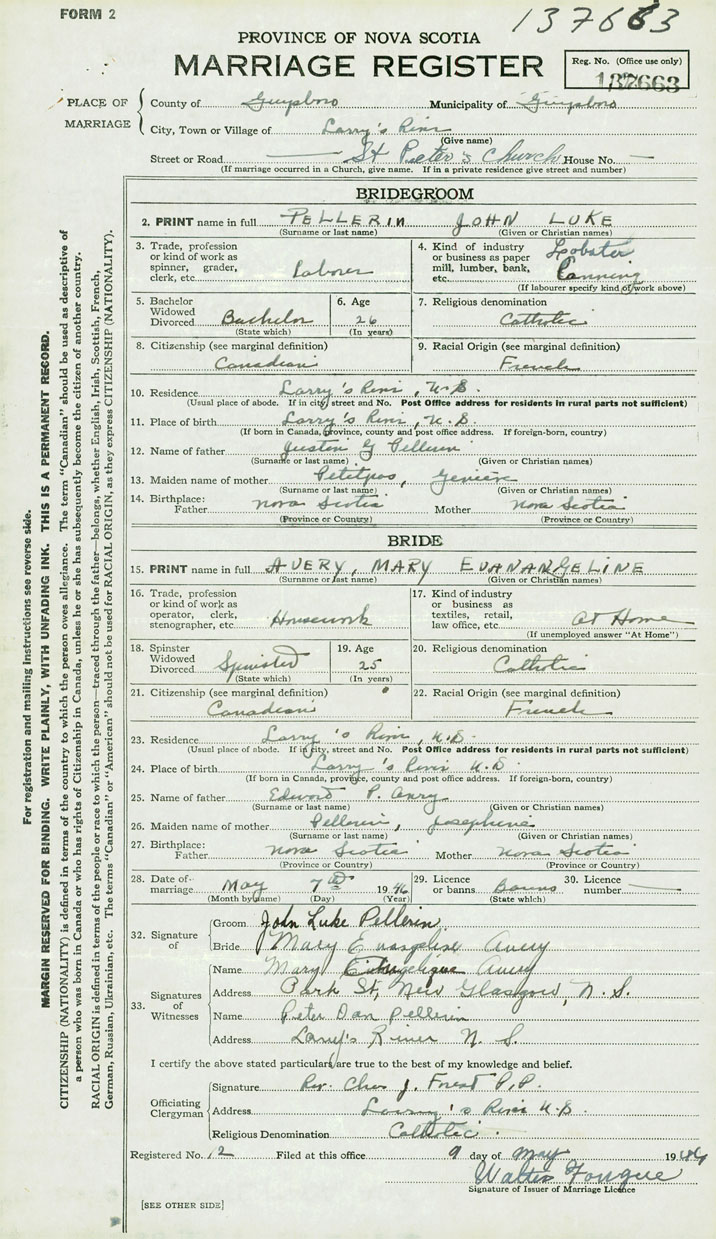 FORM 2
137663
PROVINCE OF NOVA SCOTIA
MARRIAGE REGISTER
Reg. No. (Office use only)
137663
PLACE OF MARRIAGE
County of Guysboro Municipality of Guysboro
City, Town or Village of Larry's River
(Give name)
Street or Road St Peter's Church House No.
(If marriage occurred in a Church, give name. If in a private residence give street and number)
BRIDEGROOM
2. PRINT name in full PELLERIN JOHN LUKE
(Surname or last name) (Given or Christian names)
3. Trade, profession or kind of work as spinner, grader, clerk, etc. Laborer
4. Kind of industry or business as paper mill, lumber, bank, etc. Lobster Canning
(If labourer specify kind of work above)
5. Bachelor Widowed Divorced Bachelor (State which)
6. Age 26 (In years)
7. Religious denomination Catholic
8. Citizenship (see marginal definition) Canadian
9. Racial Origin (see marginal definition) French
10. Residence Larry's River, N.S.
(Usual place of abode. If in city, street and No. Post Office address for residents in rural parts not sufficient)
11. Place of birth Larry's River, N.S.
(If born in Canada, province, county and post office address. If foreign-born, country)
12. Name of father Justin G Pellerin
(Surname or last name) (Given or Christian names)
13. Maiden name of mother Petitpas,
(Surname or last name) (Given or Christian names)
14. Birthplace: Father Nova Scotia Mother Nova Scotia
(Province or Country) (Province or Country)
BRIDE
15. PRINT name in full AVERY, MARY EVANANGELINE
(Surname or last name) (Given or Christian names)
16. Trade, profession or kind of work as operator, clerk, stenographer, etc. Housework
17. Kind of industry or business as textiles, retail, law office, etc. At Home
(If unemployed answer "At Home")
18. Spinster Widowed Divorced Spinster (State which)
19. Age 25 (In years)
20. Religious denomination Catholic
21. Citizenship (see marginal definition) Canadian
22. Racial Origin (see marginal definition) French
23. Residence Larry's River, N.S.
(Usual place of abode. If in city, street and No. Post Office address for residents in rural parts not sufficient)
24. Place of birth Larry's River N.S.
(If born in Canada, province, county and post office address. If foreign-born, country)
25. Name of father Edward P. Avery
(Surname or last name) (Given or Christian names)
26. Maiden name of mother Pellerin, Josephine
(Surname or last name) (Given or Christian names)
27. Birthplace: Father Nova Scotia Mother Nova Scotia
(Province or Country) (Province or Country)
28. Date of marriage May 7th 1946
(Month by name) (Day) (Year)
29. Licence or banns Banns (State which)
30. Licence number
32. Signature of
Groom John Luke Pellerin
Bride Mary Evangeline Avery
33. Signatures of Witnesses
Name Mary Avery
Address Park St, New Glasgow, N. S.
Name Peter Dan Pellerin
Address Larry's River N. S.
I certify the above stated particulars are true to the best of my knowledge and belief.
Officiating Clergyman
Signature Rev. Chas J. Forest P.P.
Address Larry's River N.S.
Religious Denomination Catholic
Registered No. 12 Filed at this office 9 day of May 1946
Walter
Signature of Issuer of Marriage Licence
[SEE OTHER SIDE]
For registration and mailing instructions see reverse side.
MARGIN RESERVED FOR BINDING. WRITE PLAINLY, WITH UNFADING INK. THIS IS A PERMANENT RECORD.
CITIZENSHIP (NATIONALITY) is defined in terms of the country to which the person owes allegiance. The term "Canadian" should be used as descriptive of
a person who was born in Canada or who has rights of Citizenship in Canada, unless he or she has subsequently become the citizen of another country.
RACIAL ORIGIN is defined in terms of the people or race to which the person—traced through the father—belongs, whether English, Irish, Scottish, French,
German, Russian, Ukrainian, etc. The terms "Canadian" or "American" should not be used for RACIAL ORIGIN, as they express CITIZENSHIP (NATIONALITY).